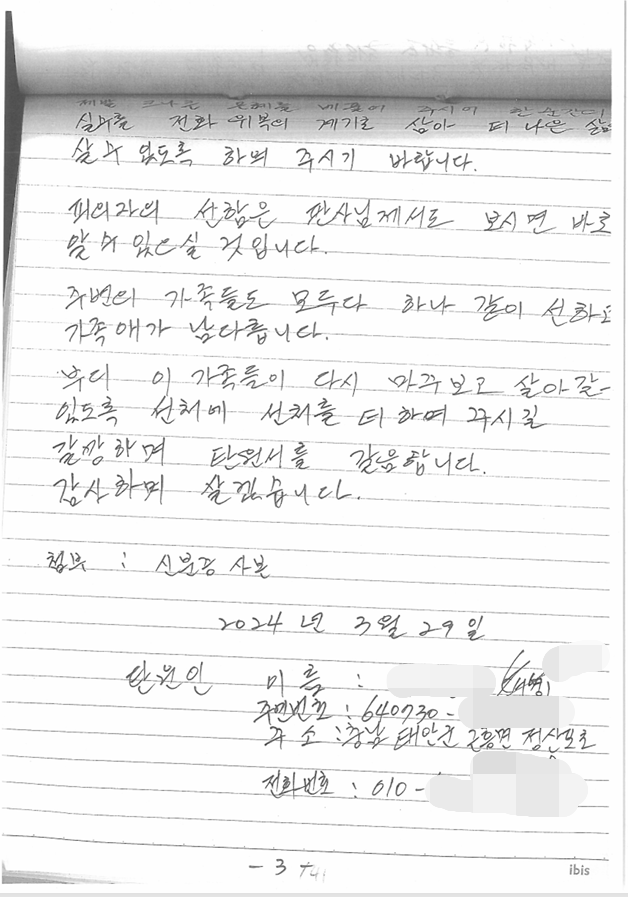 제발 크나큰 은혜를 베풀어 주시어 한순간의
실수를 전화위복의 계기로 삼아 더 나은 삶
살 수 있도록 하여 주시기 바랍니다.
피의자의 선함은 판사님께서도 보시면 바로
알 수 있으실 것입니다.
주변의 가족들도 모두다 하나 같이 선하고
가족애가 남다릅니다.
부디 이 가족들이 다시 마주보고 살아갈
있도록 선처에 선처를 더하여 주시길
갈깡하며 탄원서를 갈음합니다.
감사하며 살겠습니다.
첨부 : 신분증 사본
2024 년 3월 29일
탄원인 이름 :
주민번호 : 640730-
주소 : 충남 태안군 근흥면 정산포로
전화번호 : 010-
- 3 -
ibis